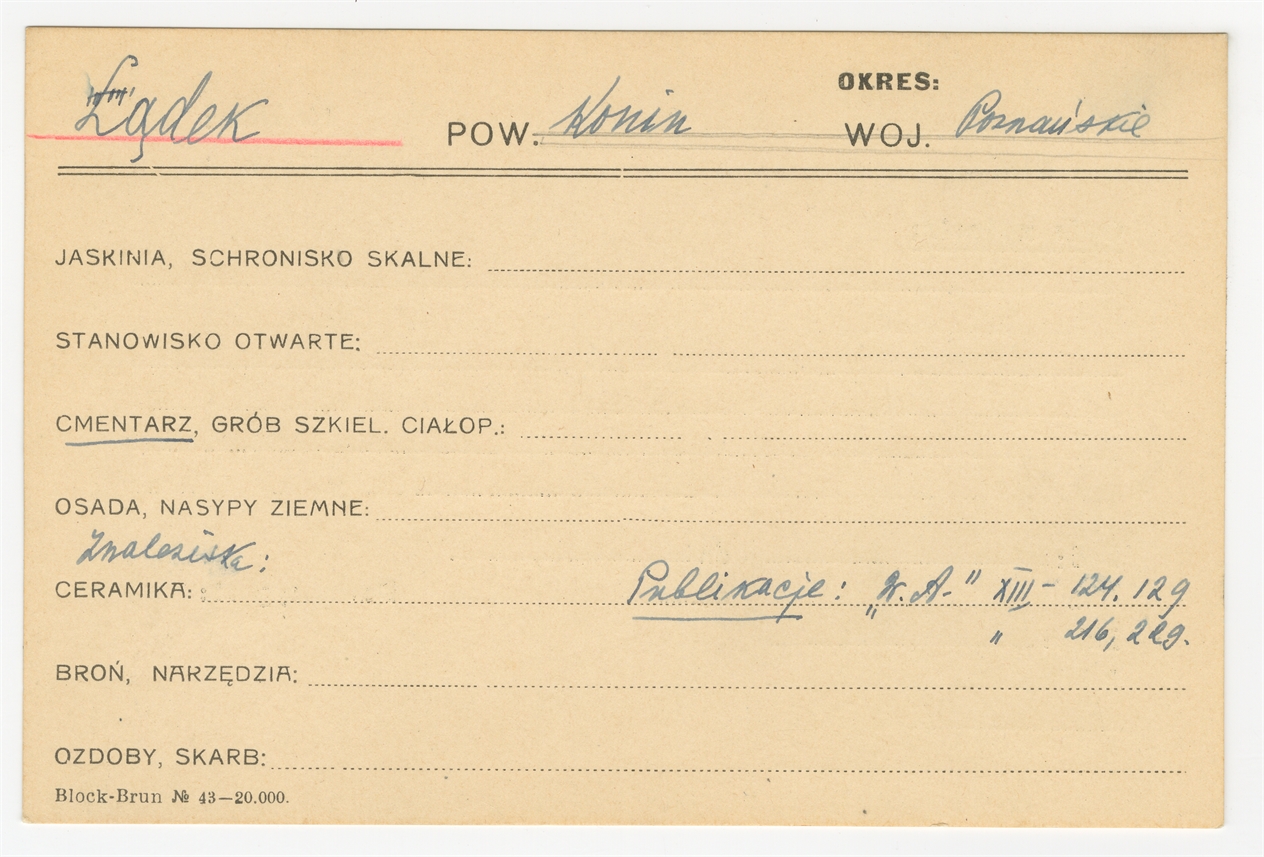 OKRES:
Łądek POW. Konin WOJ. Poznańskie
JASKINIA, SCHRONISKO SKALNE:
STANOWISKO OTWARTE:
CMENTARZ, GRÓB SZKIEL. CIAŁOP.:
OSADA, NASYPY ZIEMNE:
Znaleziska:
CERAMIKA: Publikacje: „W. A." XIII – 124. 129
" 216, 229.
BROŃ, NARZĘDZIA:
OZDOBY, SKARB:
Block-Brun № 43—20.000.